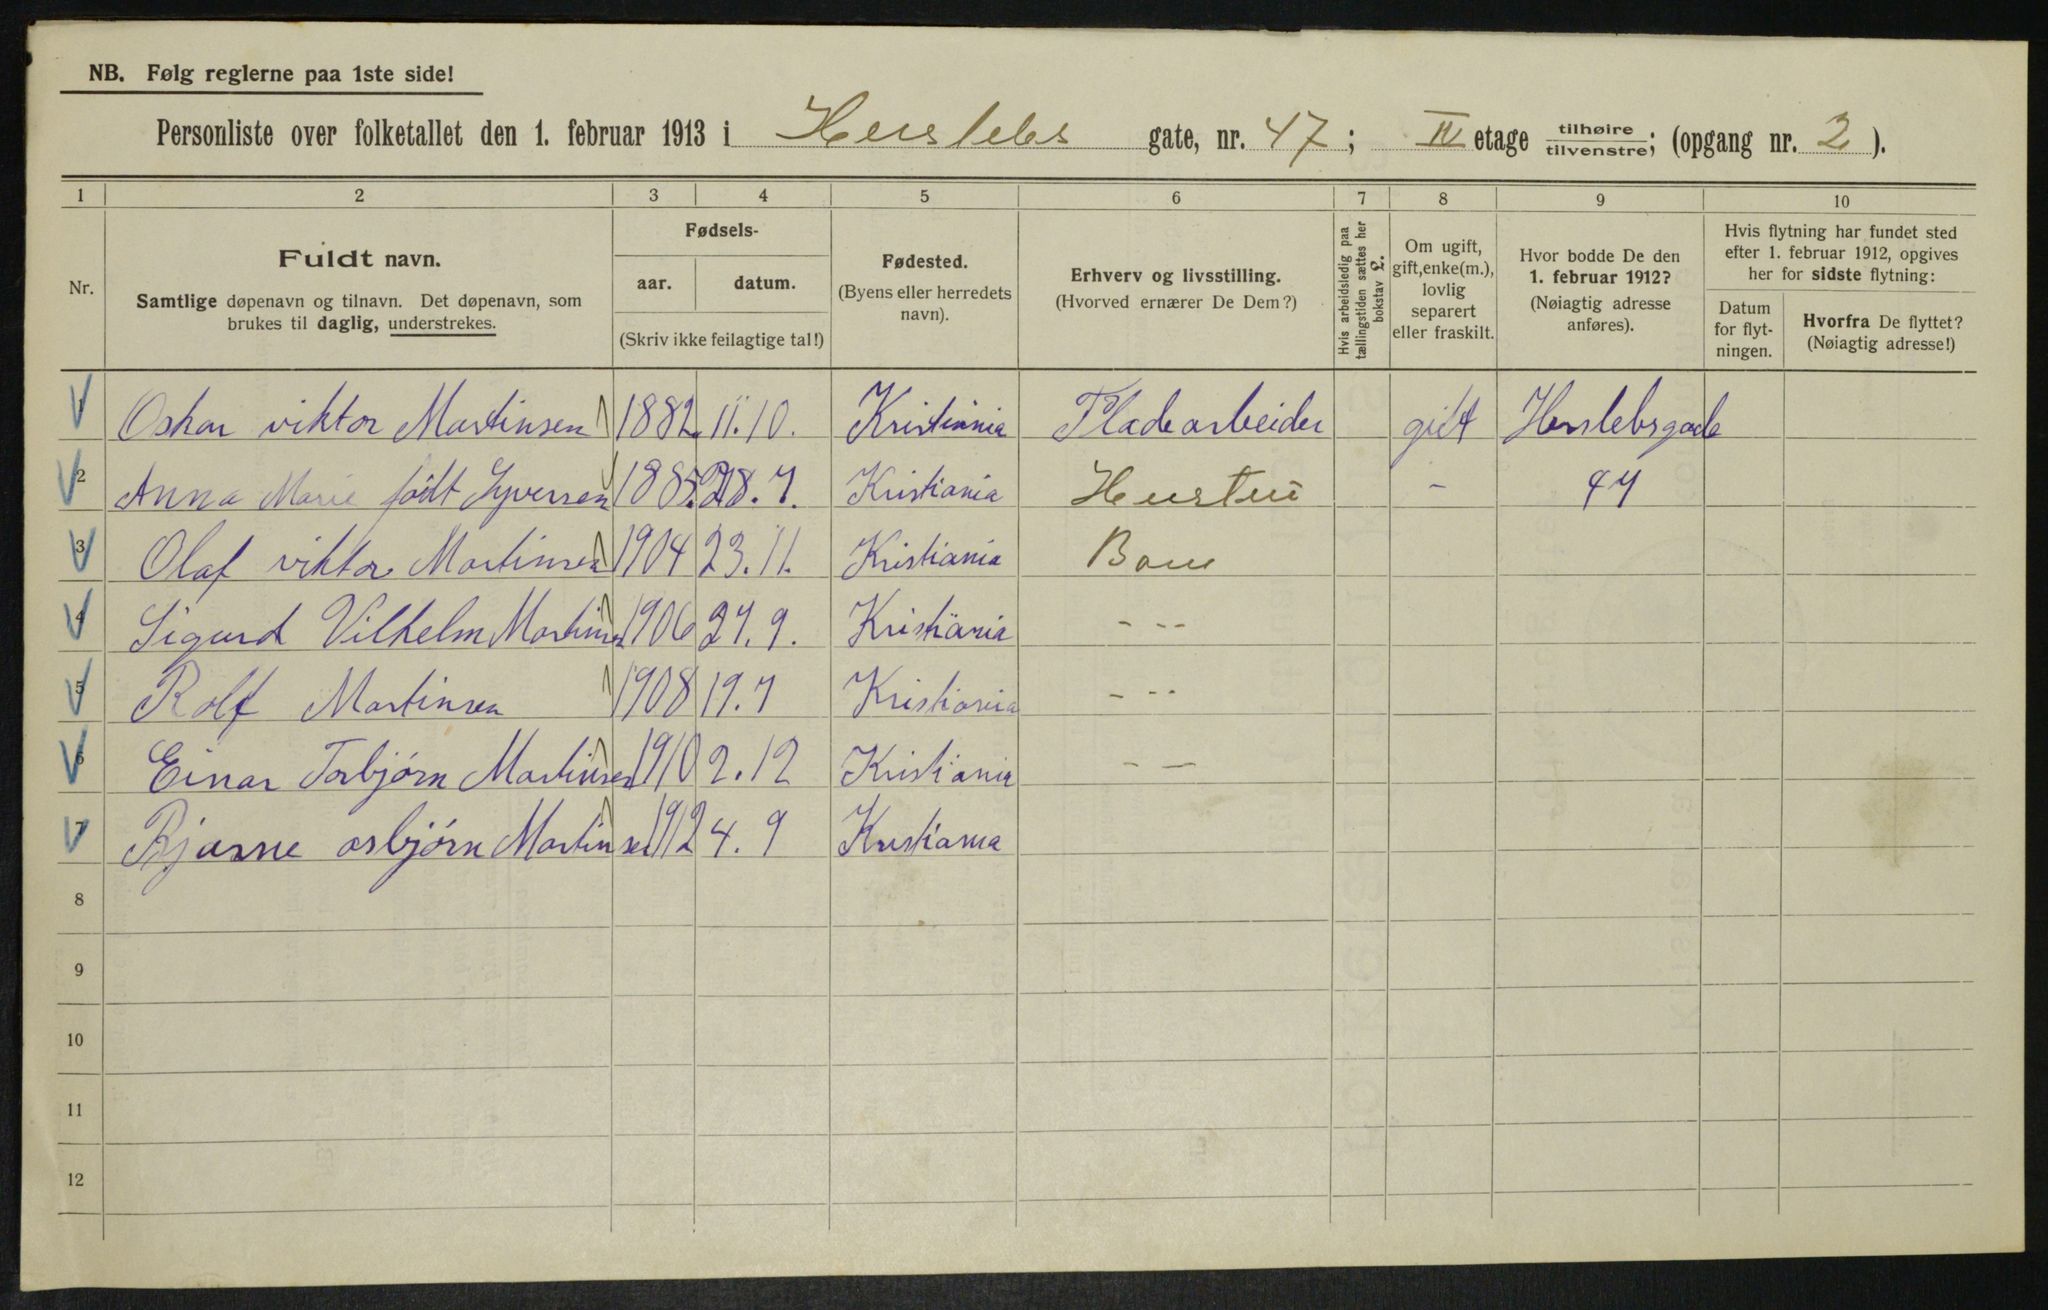 NB. Følg reglerne paa 1ste side!
Personliste over folketallet den 1. februar 1913 i Herslebs gate, nr. 47; IV etage tilhøire / tilvenstre; (opgang nr. 2).
1 2 3 4 5 6 7 8 9 10
Nr.
Fuldt navn.
Samtlige døpenavn og tilnavn. Det døpenavn, som
brukes til daglig, understrekes.
Fødsels-
aar. datum.
(Skriv ikke feilagtige tal!)
Fødested.
(Byens eller herredets
navn).
Erhverv og livsstilling.
(Hvorved ernærer De Dem?)
Hvis arbeidsledig paa
tællingstiden sættes her
bokstav L.
Om ugift,
gift, enke(m.),
lovlig
separert
eller fraskilt.
Hvor bodde De den
1. februar 1912?
(Nøiagtig adresse
anføres).
Hvis flytning har fundet sted
efter 1. februar 1912, opgives
her for sidste flytning:
Datum
for flyt-
ningen.
Hvorfra De flyttet?
(Nøiagtig adresse!)
1 Oskar viktor Martinsen 1882 11.10. Kristiania Pladearbeider gift Herslebsgade
2 Anna Marie født Syversen 1885 28.7. Kristiania Hustru - 47
3 Olaf viktor Martinsen 1904 23.11. Kristiania Barn
4 Sigurd Vilhelm Martinsen 1906 27.9. Kristiania - --
5 Rolf Martinsen 1908 19.7 Kristiania - --
6 Einar Torbjørn Martinsen 1910 2.12 Kristiania - -
7 Bjarne asbjørn Martinsen 1912 4.9 Kristiania
8
9
10
11
12